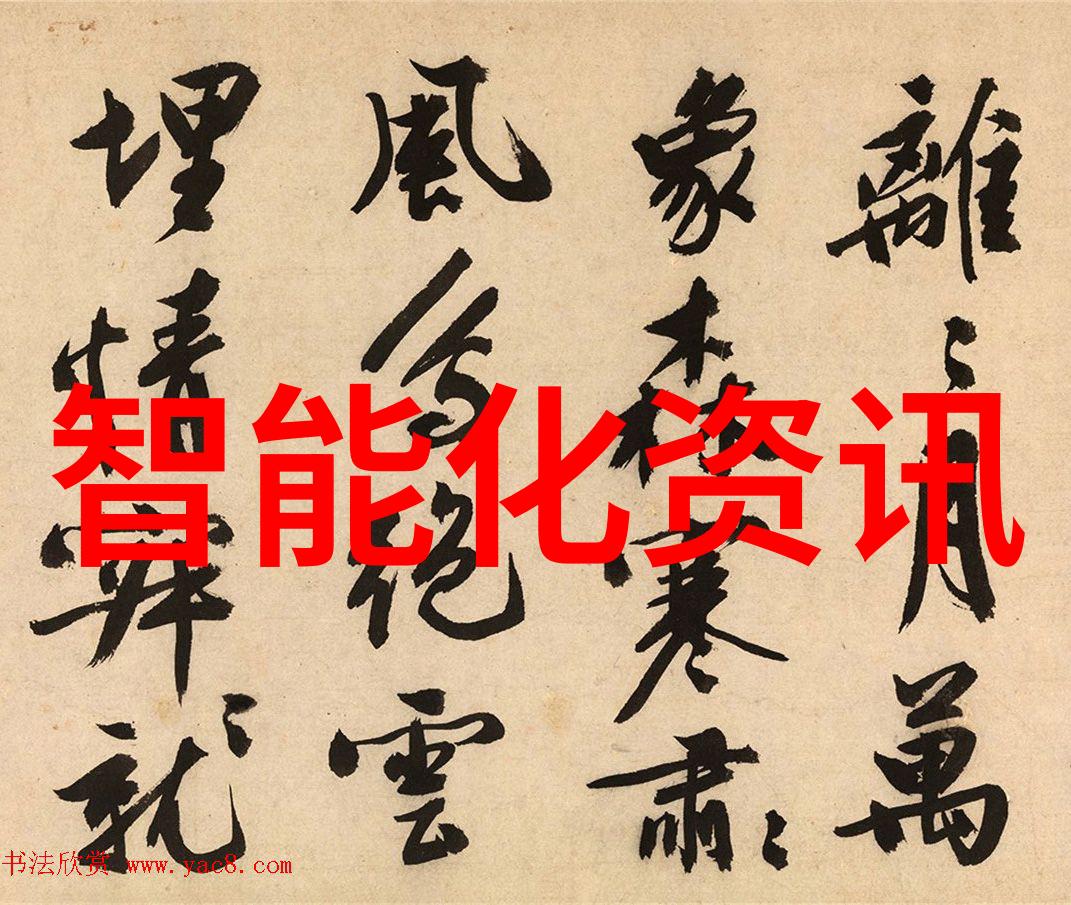 離〻月萬
象森寒肅〻
風絕雲
埋情就〻
智能化资讯
书法欣赏 www.yac8.com